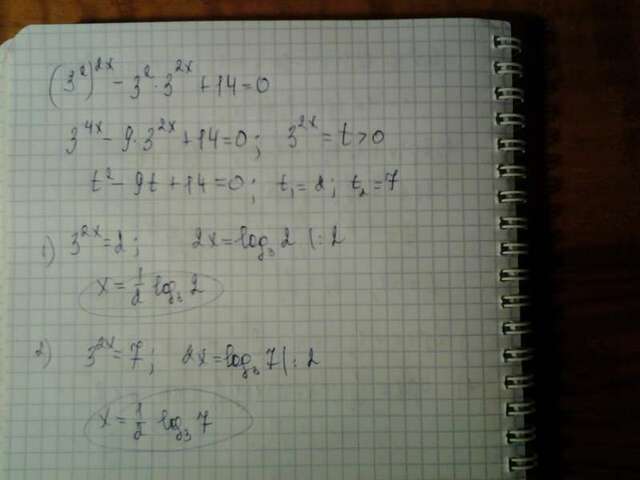 (3²)^2x - 3² · 3^2x + 14 = 0
3^4x - 9 · 3^2x + 14 = 0; 3^2x = t > 0
t² - 9t + 14 = 0; t₁ = 2; t₂ = 7
1) 3^2x = 2; 2x = log₃ 2 |: 2
x = 1/2 log₃ 2
2) 3^2x = 7; 2x = log₃ 7 |: 2
x = 1/2 log₃ 7